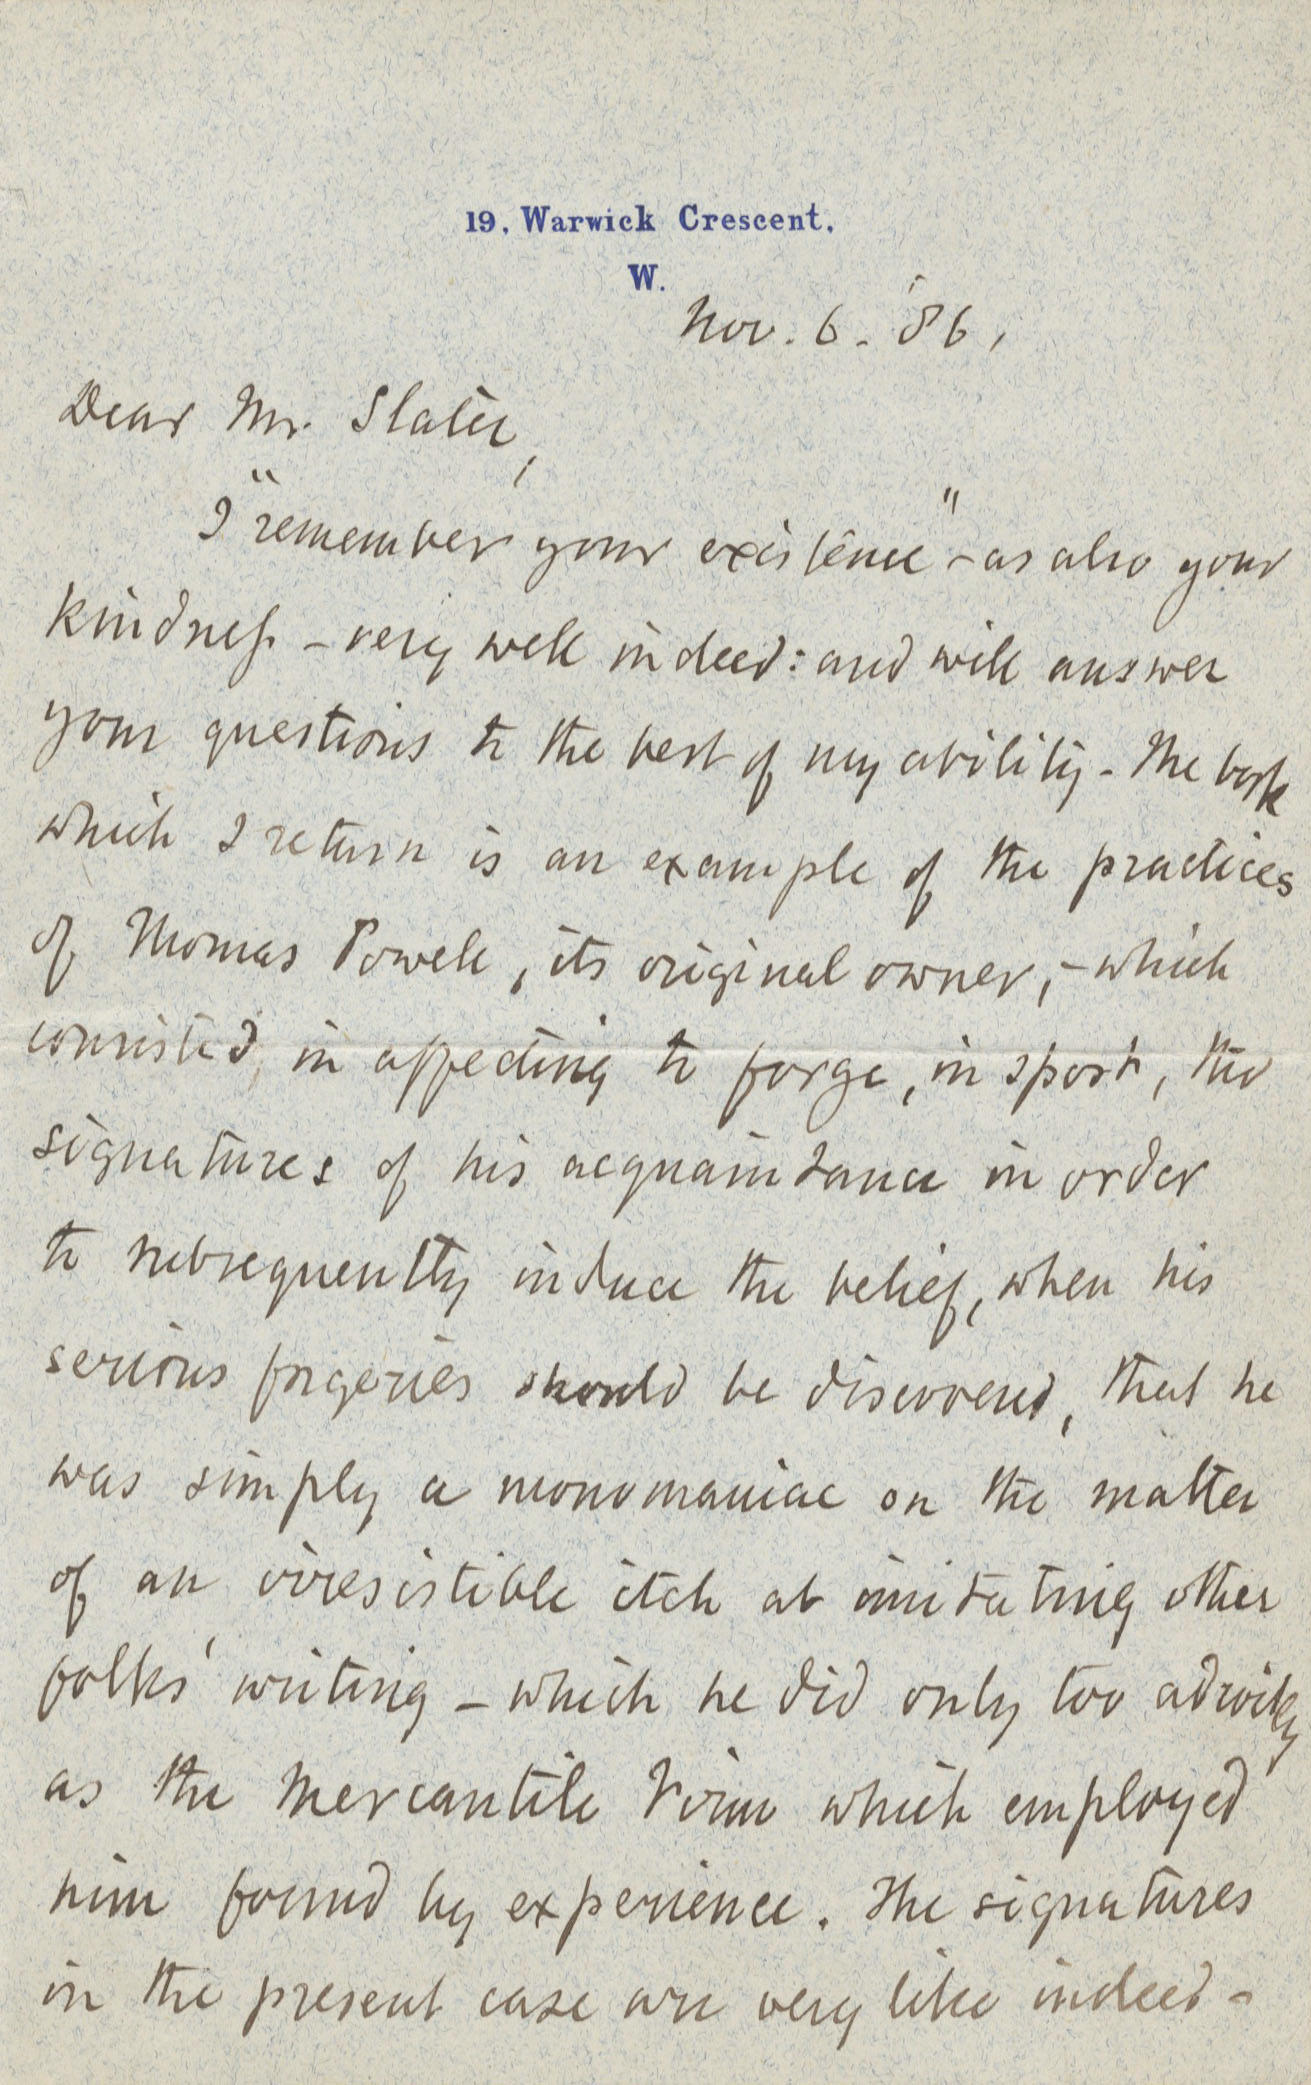 19, Warwick Crescent,
W.
Nov. 6. '86,
Dear Mr. Slater,
I "remember your existence" - as also your
kindness - very well indeed: and will answer
your questions to the best of my ability - The book
which I return is an example of the practices
of Thomas Powell, its original owner, - which
consisted in affecting to forge, in sport, the
signatures of his acquaintance in order
to subsequently induce the belief, when his
serious forgeries should be discovered, that he
was simply a monomaniac on the matter
of an irresistible itch at imitating other
folks' writing - which he did only too adroitly
as the Mercantile Firm which employed
him found by experience. The signatures
in the present case are very like indeed -